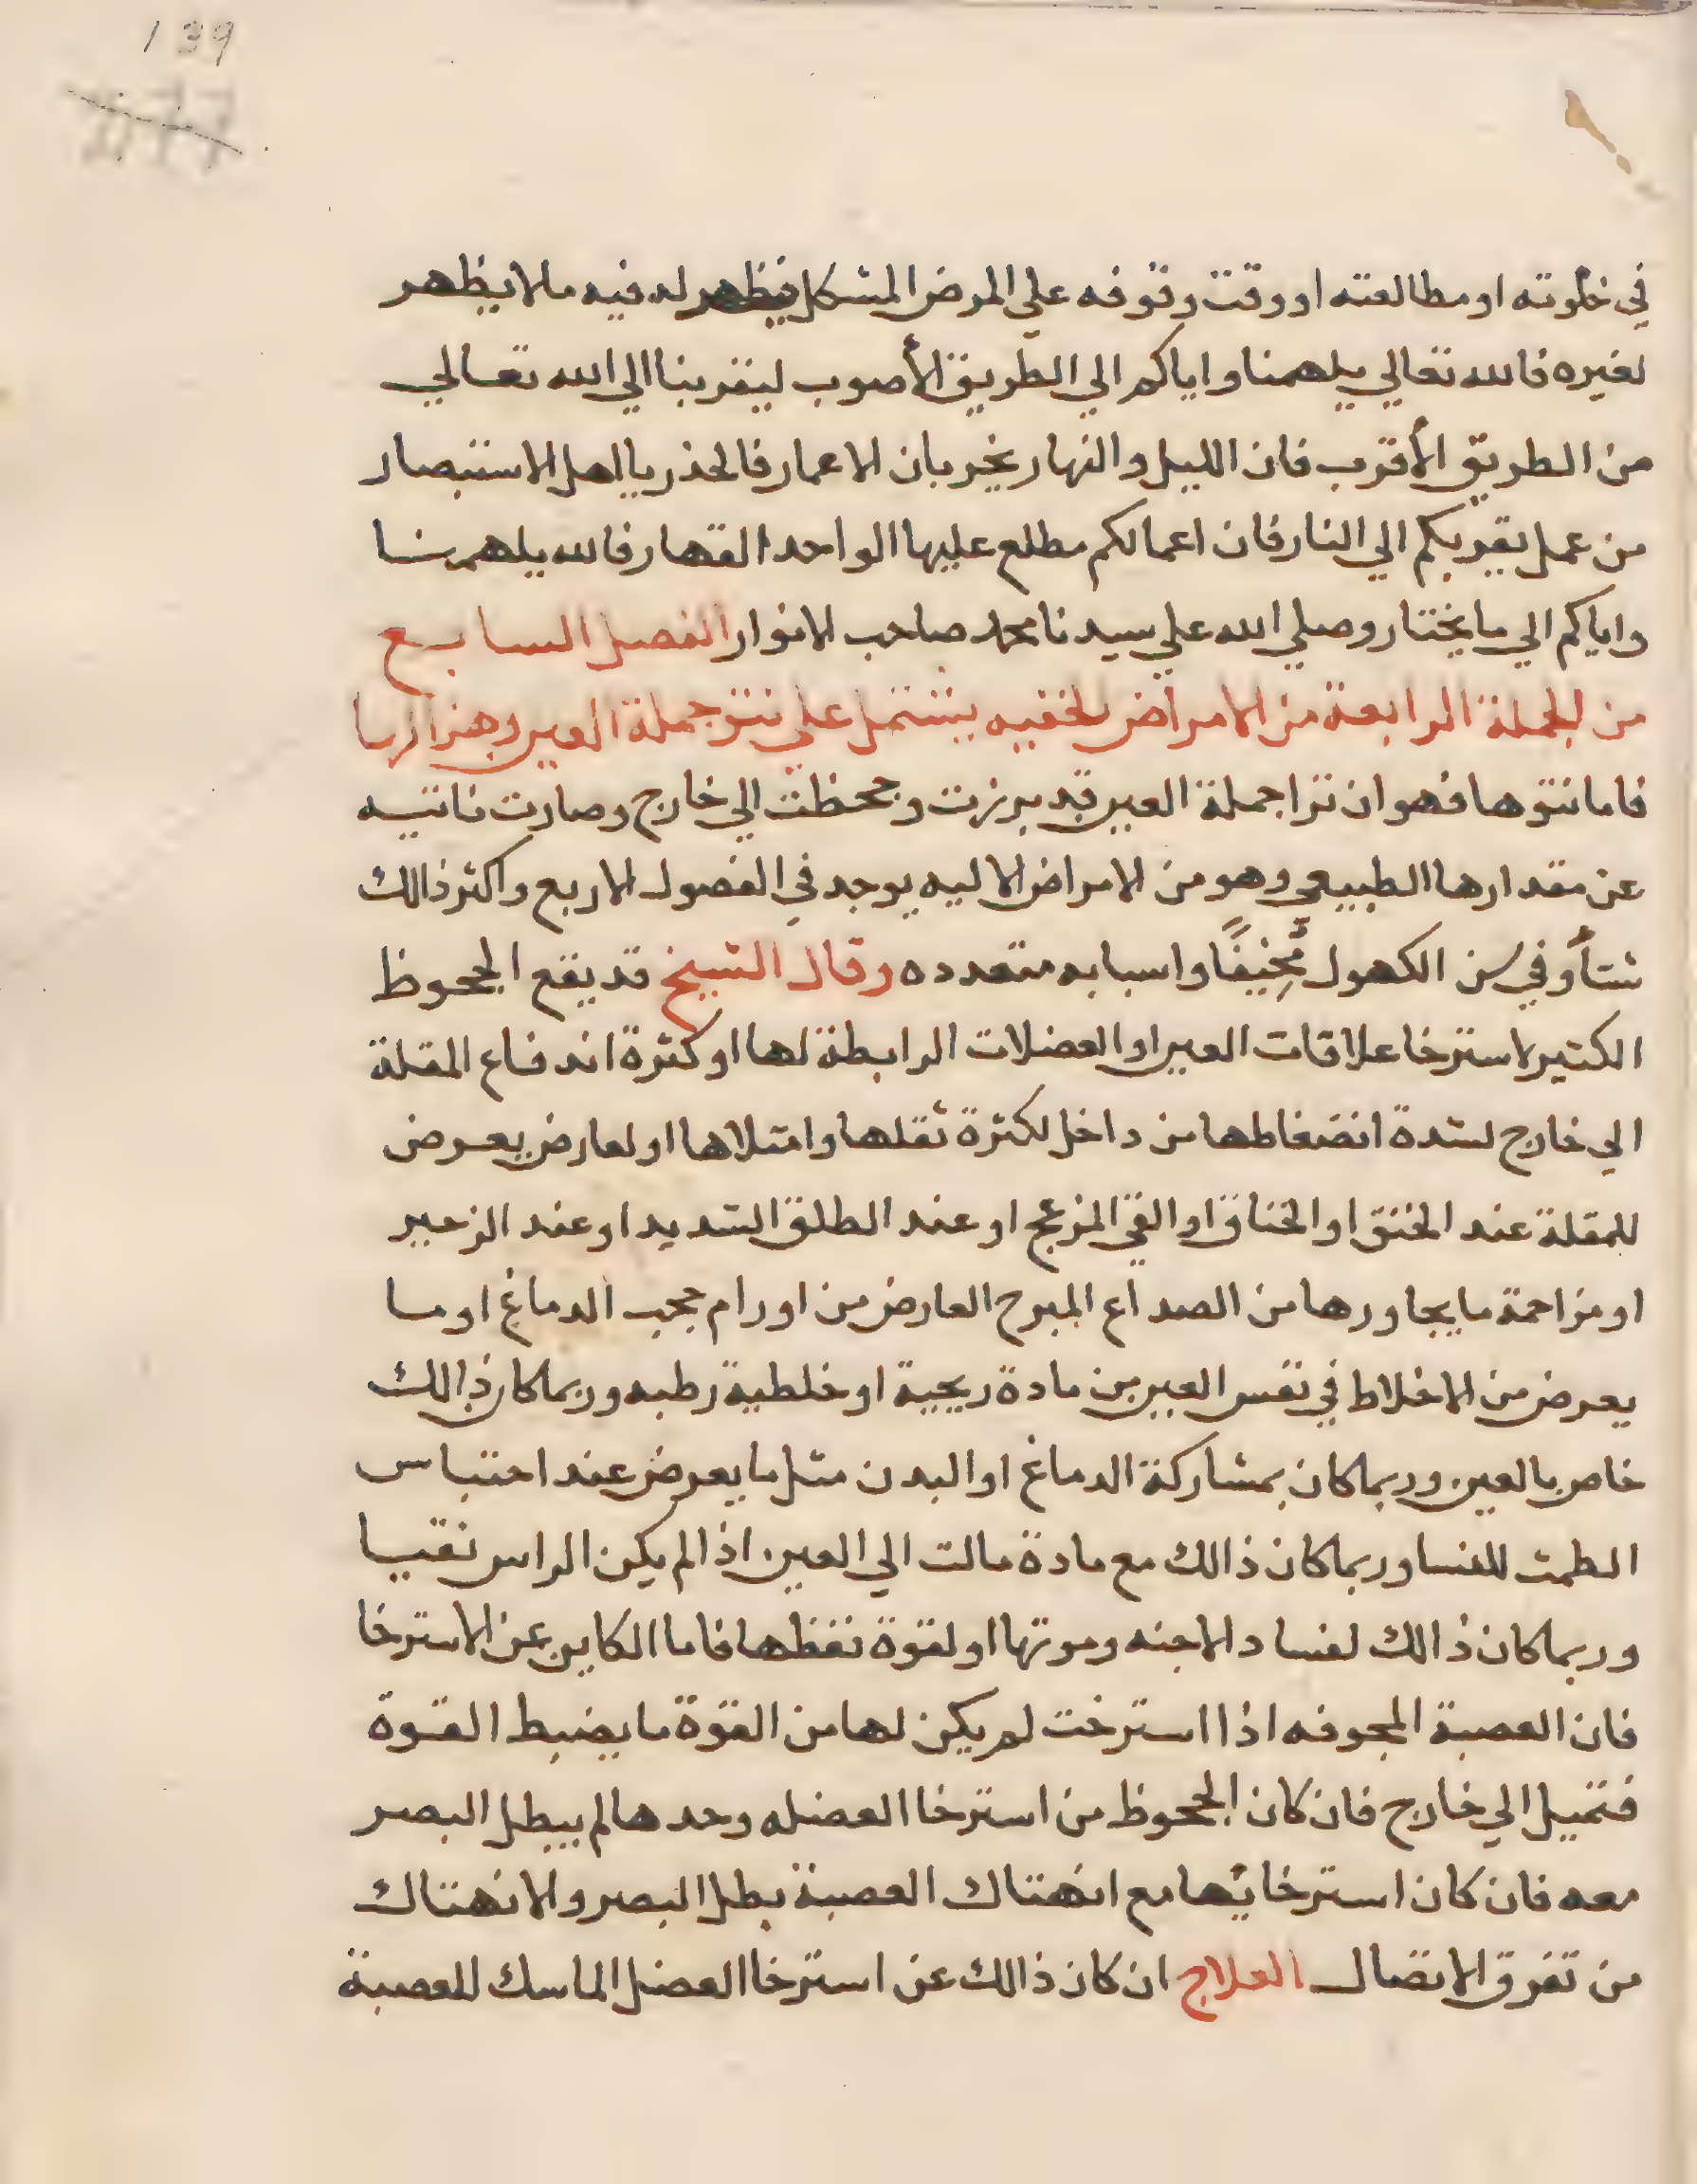 139
177
في خلوته او مطالعته او وقت وقوفه علي المرض المشكل فيظهر له فيه ما لا يظهر
لغيره فالله تعالي يلهمنا واياكم الي الطريق الأصوب ليقربنا الي الله تعالي
من الطريق الأقرب فان الليل والنهار يخربان الاعمار فالحذر يا اهل الاستبصار
من عمل يقربكم الي النار فان اعمالكم مطلع عليها الواحد القهار فالله يلهمنا
واياكم الي ما يختار وصلي الله علي سيدنا محمد صاحب الانوار الفصل السابع
من الجملة الرابعة من الامراض الخفيه يشتمل علي نتو جملة العين وهزالها
فاما نتوها فهو ان ترا جملة العين قد برزت وجحظت الي خارج وصارت ناتيه
عن مقدارها الطبيعي وهو من الامراض الاليه يوجد في الفصول الاربع واكثر ذالك
شتأ وفي سن الكهول مُخِيفًا واسبابه متعدده وقال الشيخ قد يقع الجحوظ
الكثير لاسترخا علاقات العين او العضلات الرابطة لها او كثرة اندفاع المقلة
الي خارج لشدة انضغاطها من داخل لكثرة ثقلها وامتلاها او لعارض يعرض
للمقلة عند الخنق او الخناق او القي المزعج او عند الطلق الشديد او عند الزحير
او مزاحمة ما يجاورها من الصداع المبرح العارض من اورام حجب الدماغ او ما
يعرض من الاخلاط في نفس العين من مادة ريحية او خلطية رطبه وربما كان ذالك
خاص بالعين وربما كان بمشاركة الدماغ او البدن مثل ما يعرض عند احتباس
الطمث للنسا وربما كان ذالك مع مادة مالت الي العين اذا لم يكن الراس نقيا
وربما كان ذالك لفساد الاجنه وموتها او لقوة نفظها فاما الكاين عن الاسترخا
فان العصبة المجوفه اذا استرخت لم يكن لها من القوة ما يضبط القوة
فتميل الي خارج فان كان الجحوظ من استرخا العضله وحدها لم يبطل البصر
معه فان كان استرخائها مع انهتاك العصبة بطل البصر والانهتاك
من تفرق الاتصال العلاج ان كان ذالك عن استرخا العضل الماسك للعصبة